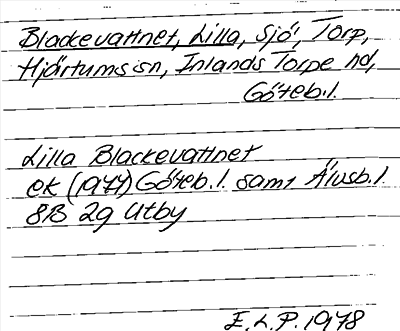 Blackevattnet, Lilla, sjö, Torp,
Hjärtums sn, Inlands Torpe hd,
Göteb.l.
Lilla Blackevattnet
ek (1977) Göteb.l. samt Älvsb.l.
8B 2g Utby
E.L.P. 1978